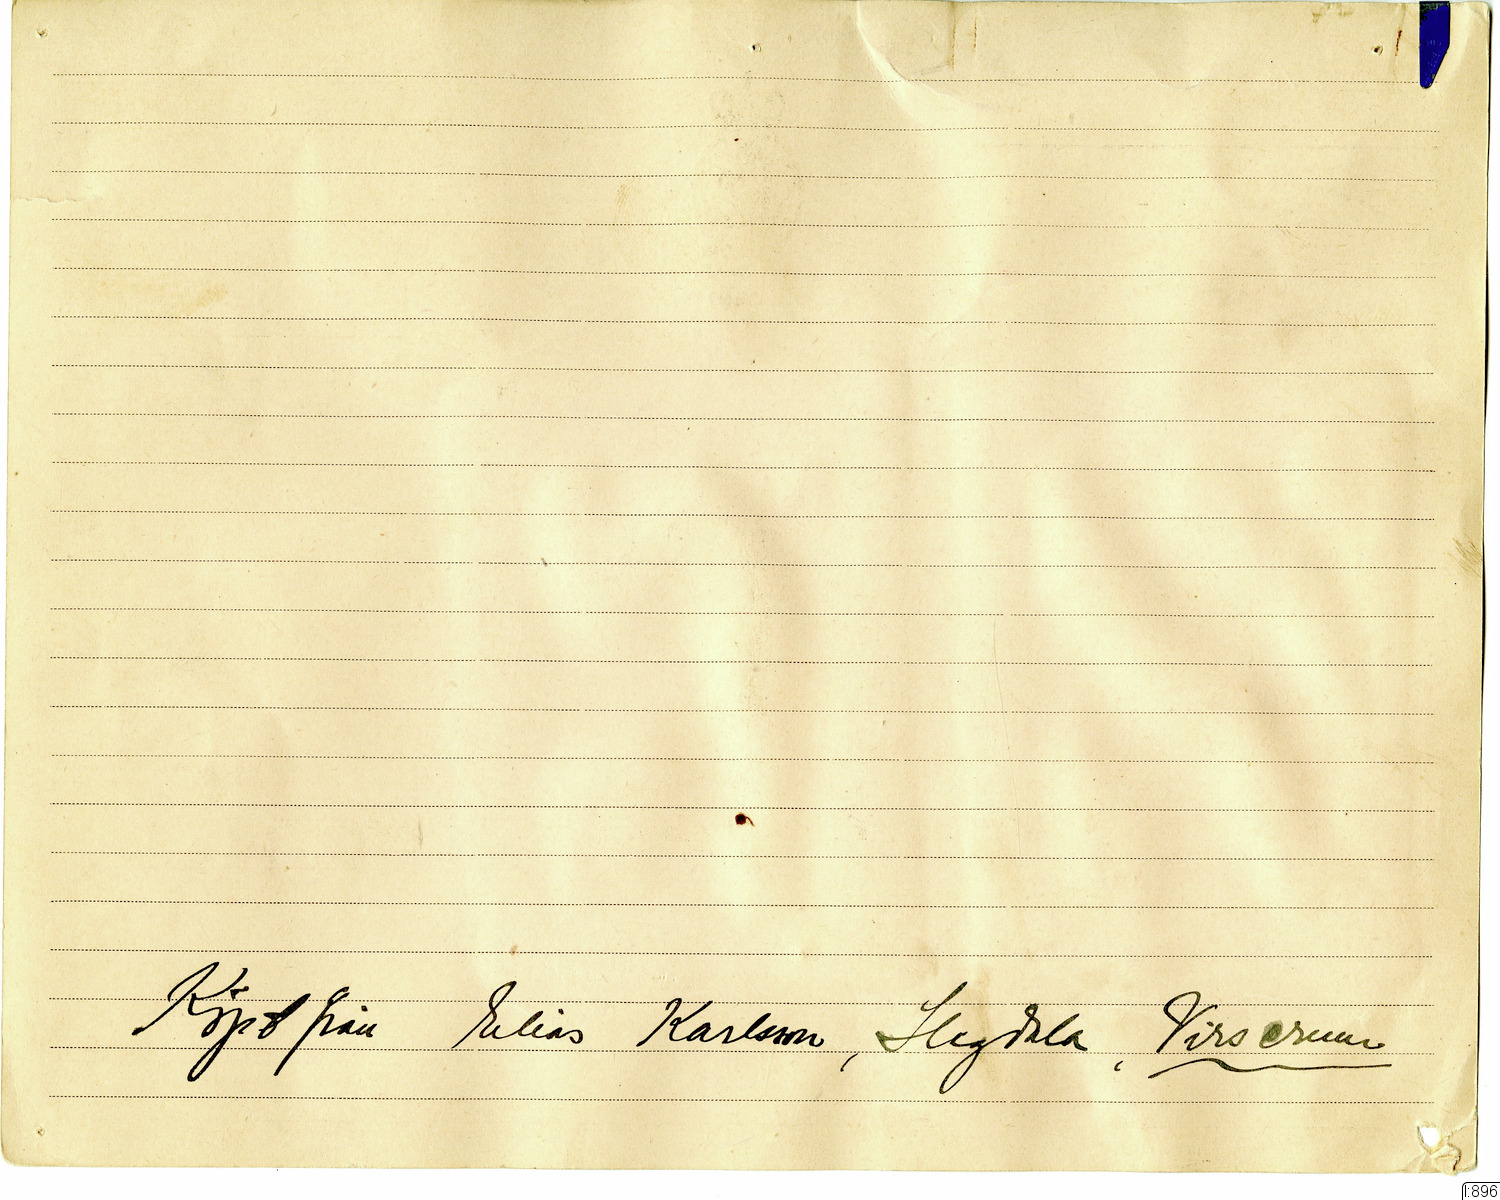 Köpt från Elias Karlsson, Slagdala, Virserum
1:896